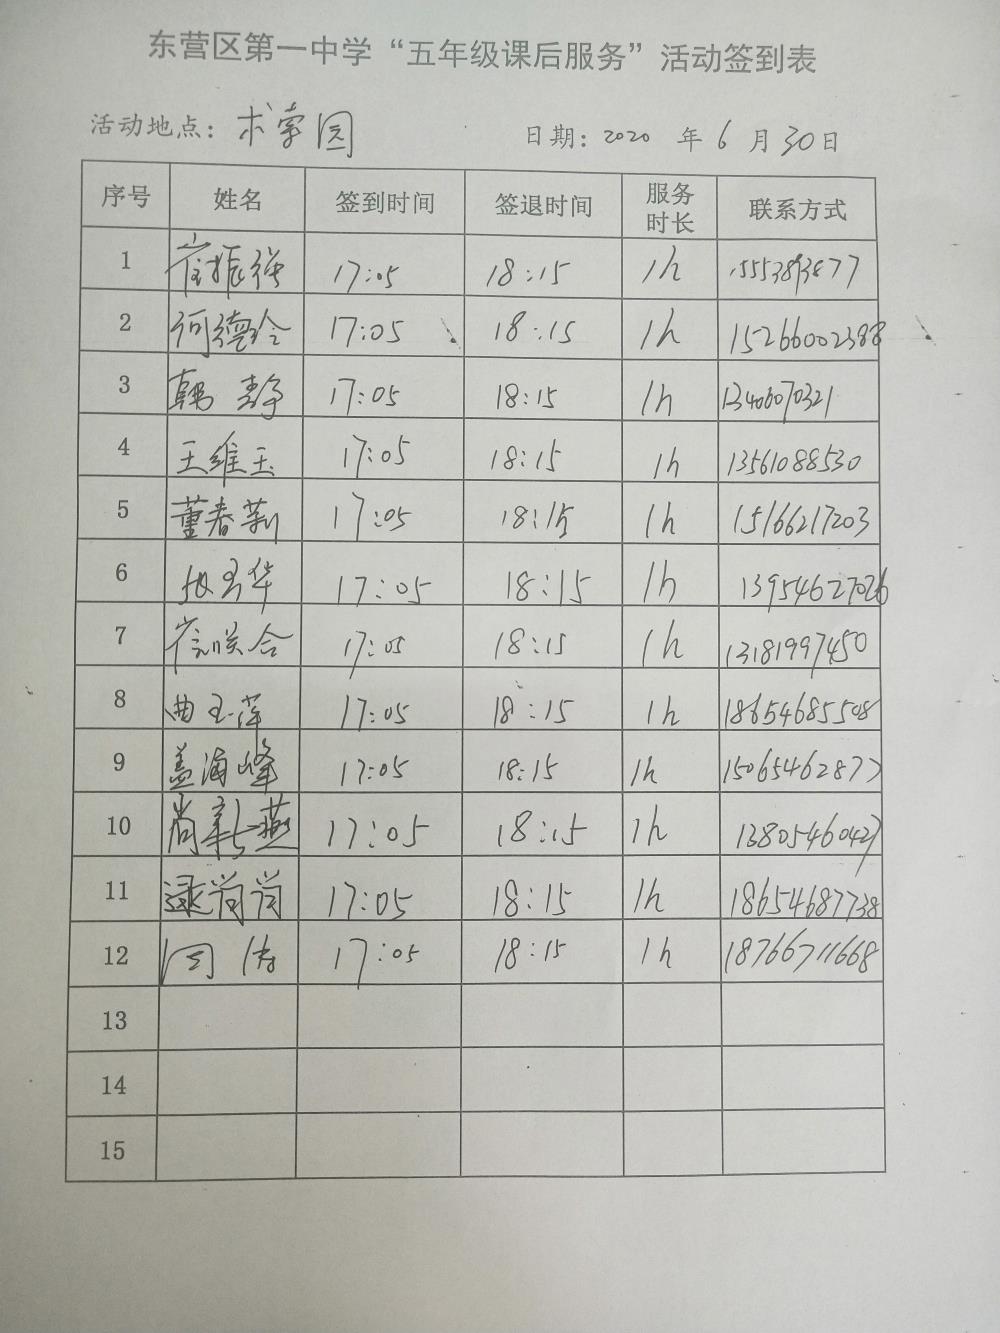 东营区第一中学“五年级课后服务”活动签到表
活动地点：求索园 日期：2020 年 6 月 30 日
序号 姓名 签到时间 签退时间 服务时长 联系方式
1 17:05 18:15 1h
2 何德玲 17:05 18:15 1h 15266002388
3 韩静 17:05 18:15 1h 13406070321
4 王维玉 17:05 18:15 1h 13561088530
5 董春莉 17:05 18:15 1h 15166217203
6 17:05 18:15 1h 13954627026
7 17:05 18:15 1h 13181997450
8 曲玉萍 17:05 18:15 1h 18654685508
9 盖海峰 17:05 18:15 1h 15065462877
10 尚新燕 17:05 18:15 1h 13805460427
11 17:05 18:15 1h 18654687738
12 17:05 18:15 1h 18766711668
13
14
15